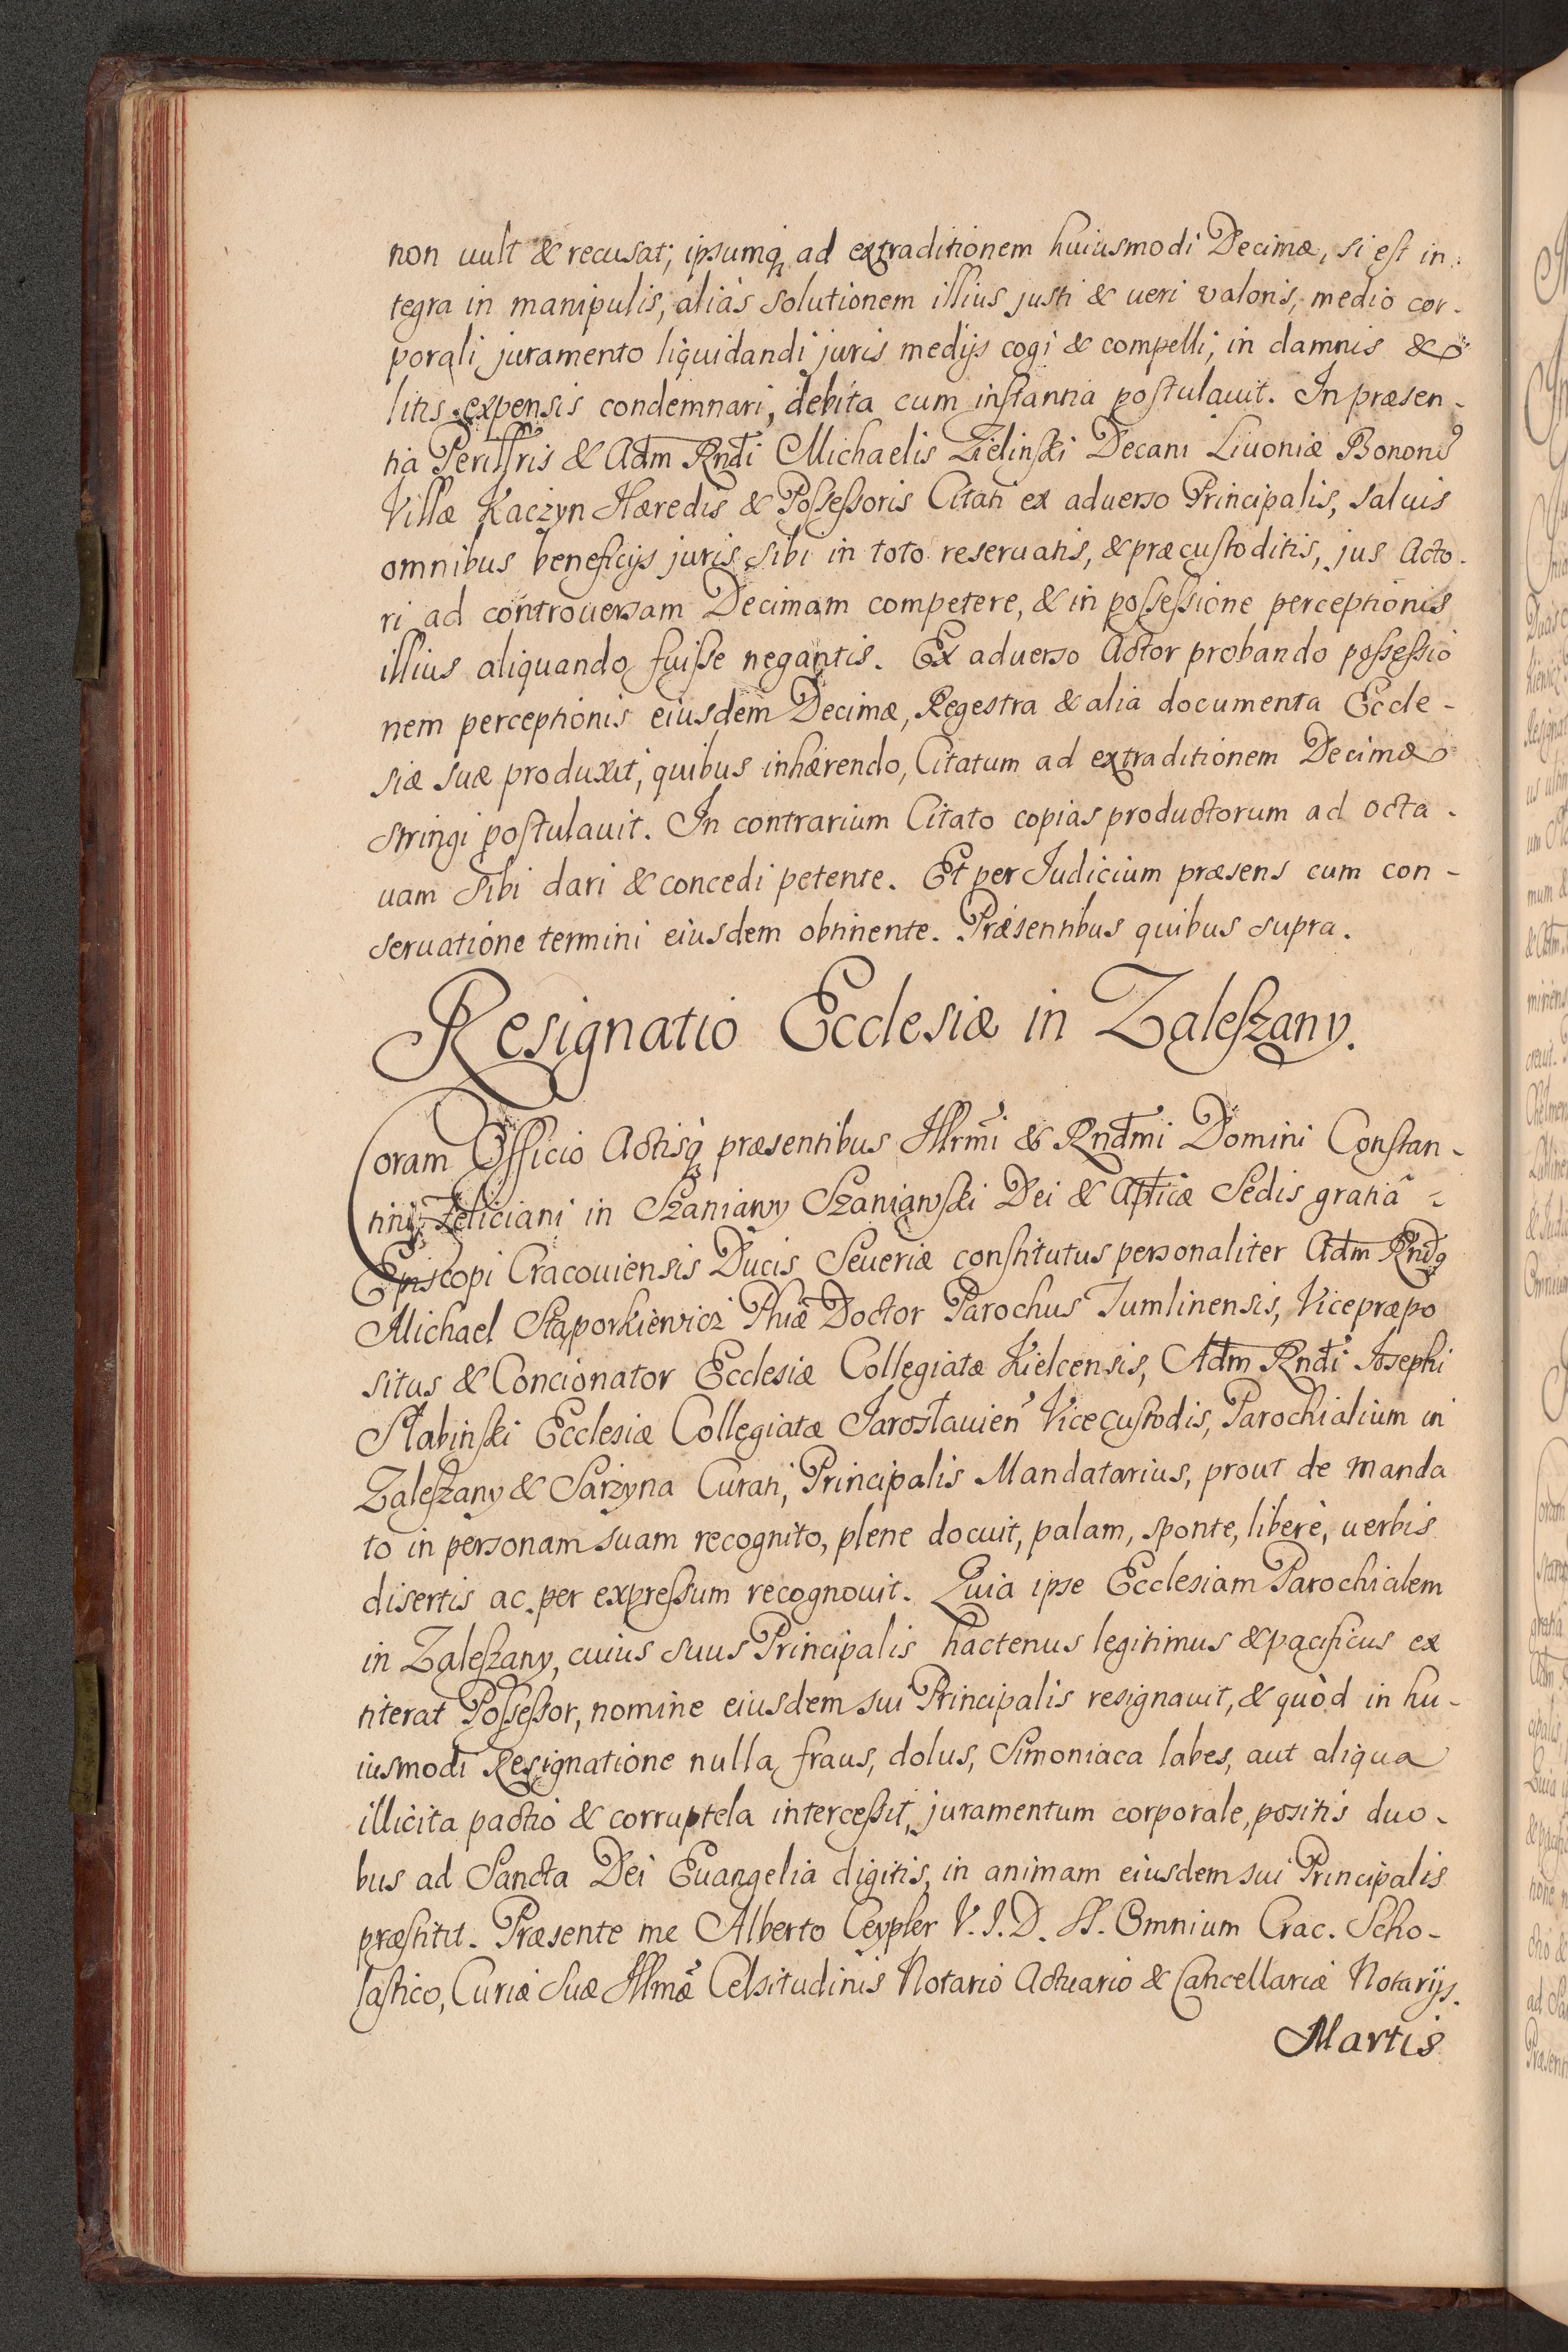 non uult & recusat; ipsumq; ad extraditionem huiusmodi Decimæ, si est in:
tegra in manipulis, aliàs solutionem illius justi & ueri valoris, medio cor-
porali juramento liquidandi juris medijs cogi & compelli, in damnis &
litis expensis condemnari, debita cum instantia postulauit. In præsen-
tia Perillris & Adm Rndi Michaelis Zielinski Decani Liuoniæ Bonorũ
Villæ Kaczyn Hæredis & Possessoris Citati ex aduerso Principalis, saluis
omnibus beneficijs juris sibi in toto reseruatis, & præcustoditis, jus Acto-
ri ad controuersam Decimam competere, & in possessione perceptionis
illius aliquando fuisse negantis. Ex aduerso Actor probando possessio
nem perceptionis eiusdem Decimæ, Regestra & alia documenta Eccle-
siæ suæ produxit, quibus inhærendo, Citatum ad extraditionem Decimæ
stringi postulauit. In contrarium Citato copias productorum ad octa-
uam sibi dari & concedi petente. Et per Iudicium præsens cum con-
seruatione termini eiusdem obtinente. Præsentibus quibus supra.
Resignatio Ecclesiæ in Zaleszany.
Coram Officio Actisq; præsentibus Illrmi & Rndmi Domini Constan-
tini Feliciani in Szaniawy Szaniawski Dei & Aplicæ Sedis gratiâ -
Episcopi Cracouiensis Ducis Seueriæ constitutus personaliter Adm Rndq
Michael Stąporkiewicz Phiæ Doctor Parochus Tumlinensis, Vicepræpo
situs & Concionator Ecclesiæ Collegiatæ Kielcensis, Adm Rndi Iosephi
Słabinski Ecclesiæ Collegiatæ Jarosłauien Vicecustodis, Parochialium in
Zaleszany & Sarzyna Curati, Principalis Mandatarius, prout de manda
to in personam suam recognito, plene docuit, palam, sponte, liberè, uerbis
disertis ac per expressum recognouit. Quia ipse Ecclesiam Parochialem
in Zaleszany, cuius suus Principalis hactenus legitimus & pacificus ex
titerat Possessor, nomine eiusdem sui Principalis resignauit, & quòd in hu-
iusmodi Resignatione nulla fraus, dolus, Simoniaca labes, aut aliqua
illicita pactio & corruptela intercessit, juramentum corporale, positis duo-
bus ad Sancta Dei Euangelia digitis, in animam eiusdem sui Principalis
præstitit. Præsente me Alberto Ceypler V. I. D. SS. Omnium Crac. Scho-
lastico, Curiæ Suæ Illmæ Celsitudinis Notario Actuario & Cancellariæ Notarijs.
Martis